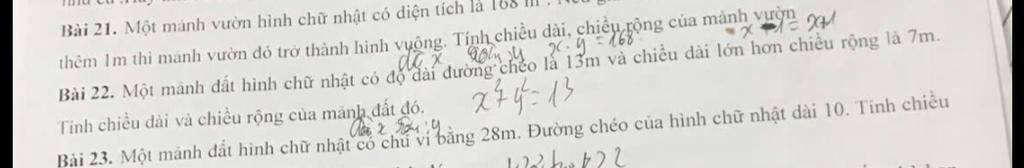 Bài 21. Một mảnh vườn hình chữ nhật có diện tích là 168 m
thêm 1m thì mảnh vườn đó trở thành hình vuông. Tính chiều dài, chiều rộng của mảnh vườn
x · y = 168
Bài 22. Một mảnh đất hình chữ nhật có độ dài đường chéo là 13m và chiều dài lớn hơn chiều rộng là 7m.
Tính chiều dài và chiều rộng của mảnh đất đó.
x² + y² = 13
Bài 23. Một mảnh đất hình chữ nhật có chu vi bằng 28m. Đường chéo của hình chữ nhật dài 10. Tính chiều